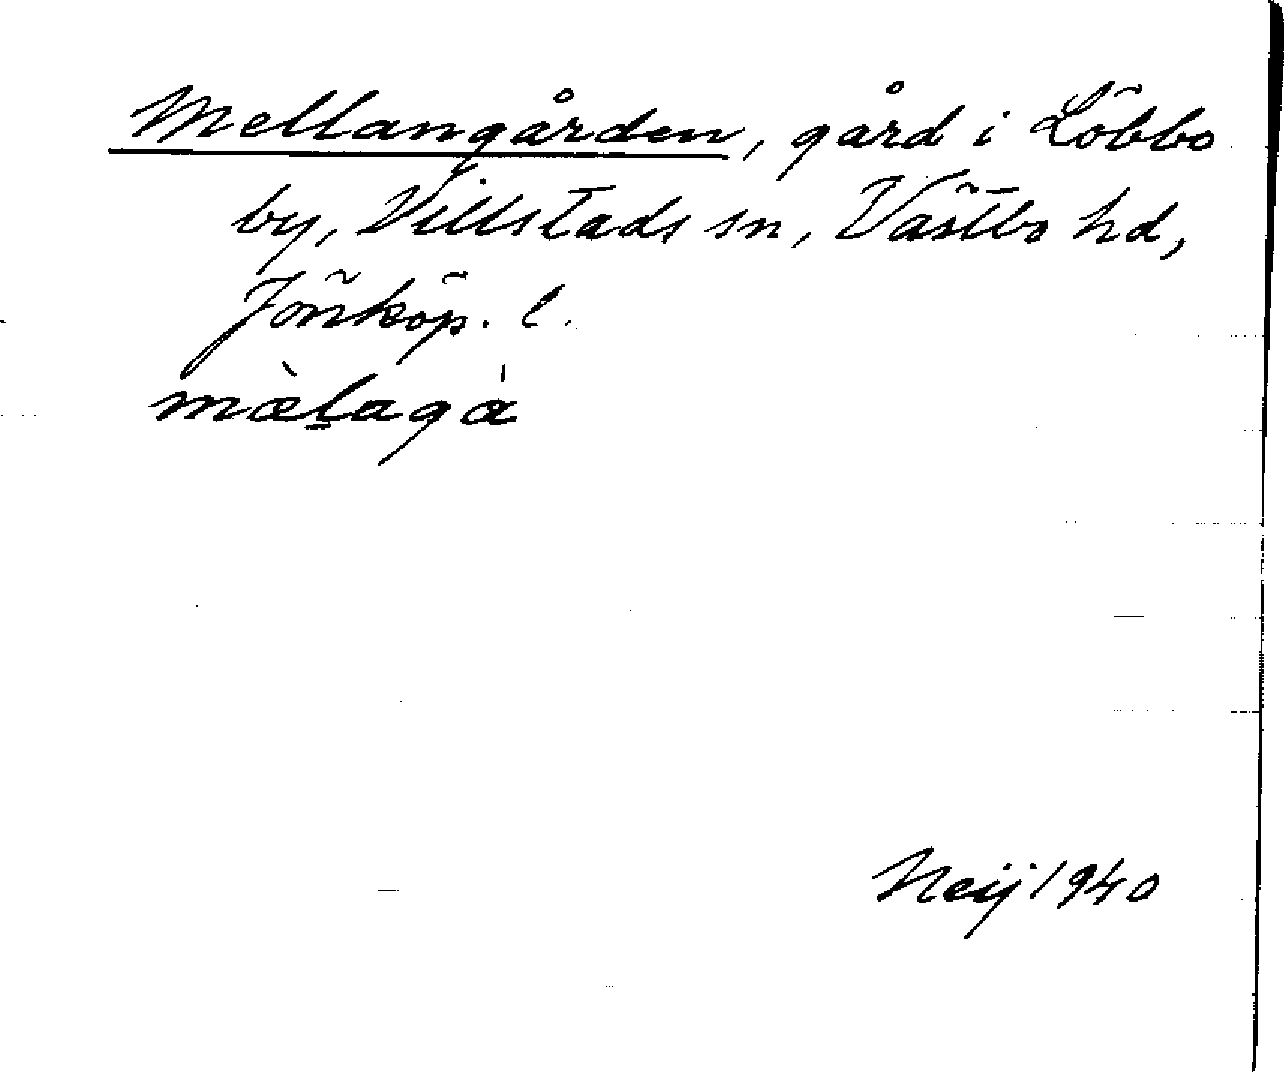 Mellangården, gård i Löbbo
by, Villstads sn, Västbo hd,
Jönköp. l.
mæ̀l̲agá
Neij 1940